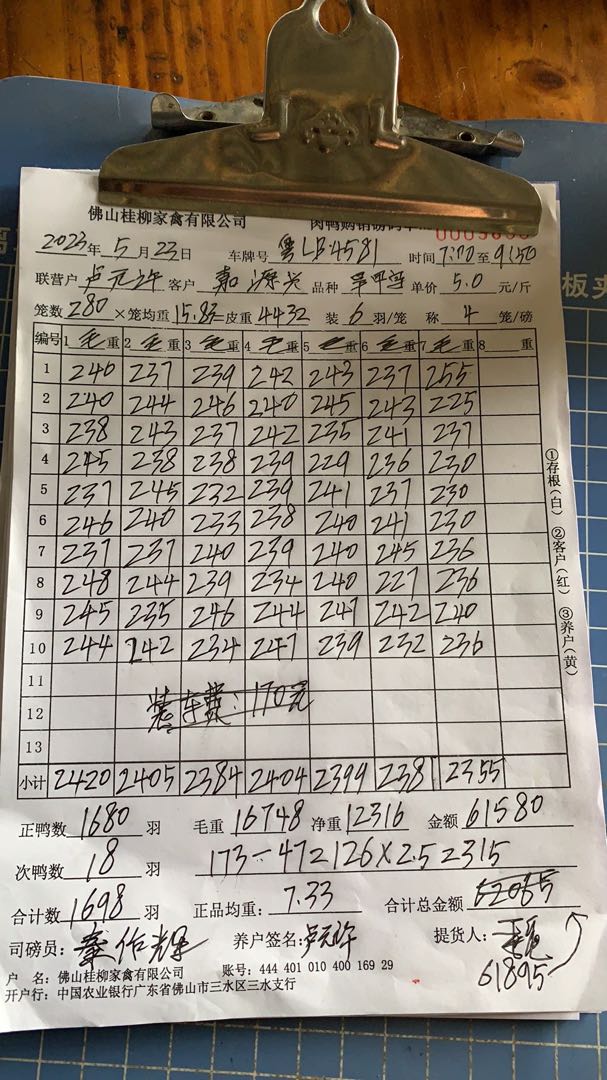 佛山桂柳家禽有限公司 肉鸭购销磅码单
2023年5月23日 车牌号 粤LB4581 时间 7:00至9:50
联营户 客户 嘉 品种 单价 5.0 元/斤
笼数 280 ×笼均重 15.83 皮重 4432 装 6 羽/笼 称 4 笼/磅
编号 1 毛重 2 毛重 3 毛重 4 毛重 5 毛重 6 毛重 7 毛重 8 重
1 240 237 239 242 243 237 255
2 240 244 246 240 245 243 225
3 238 243 237 242 235 241 237
4 245 238 238 239 229 236 230
5 237 245 232 239 241 237 230
6 246 240 233 238 240 241 230
7 237 237 240 239 240 245 236
8 248 244 239 234 240 227 236
9 245 235 246 244 247 242 240
10 244 242 234 247 239 232 236
11
12 装车费：170元
13
小计 2420 2405 2384 2404 2399 2381 2355
正鸭数 1680 羽 毛重 16748 净重 12316 金额 61580
次鸭数 18 羽 173-47=126×2.5=315
合计数 1698 羽 正品均重： 7.33 合计总金额
司磅员： 养户签名： 提货人：
61895
户 名：佛山桂柳家禽有限公司 账号：444 401 010 400 169 29
开户行：中国农业银行广东省佛山市三水区三水支行
①存根(白) ②客户(红) ③养户(黄)
板夹